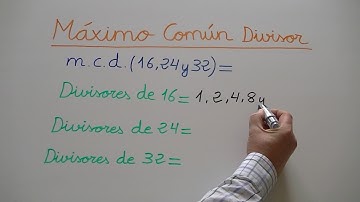 Máximo Común Divisor
m.c.d.(16,24y32)=
Divisores de 16=1,2,4,8y
Divisores de 24=
Divisores de 32=